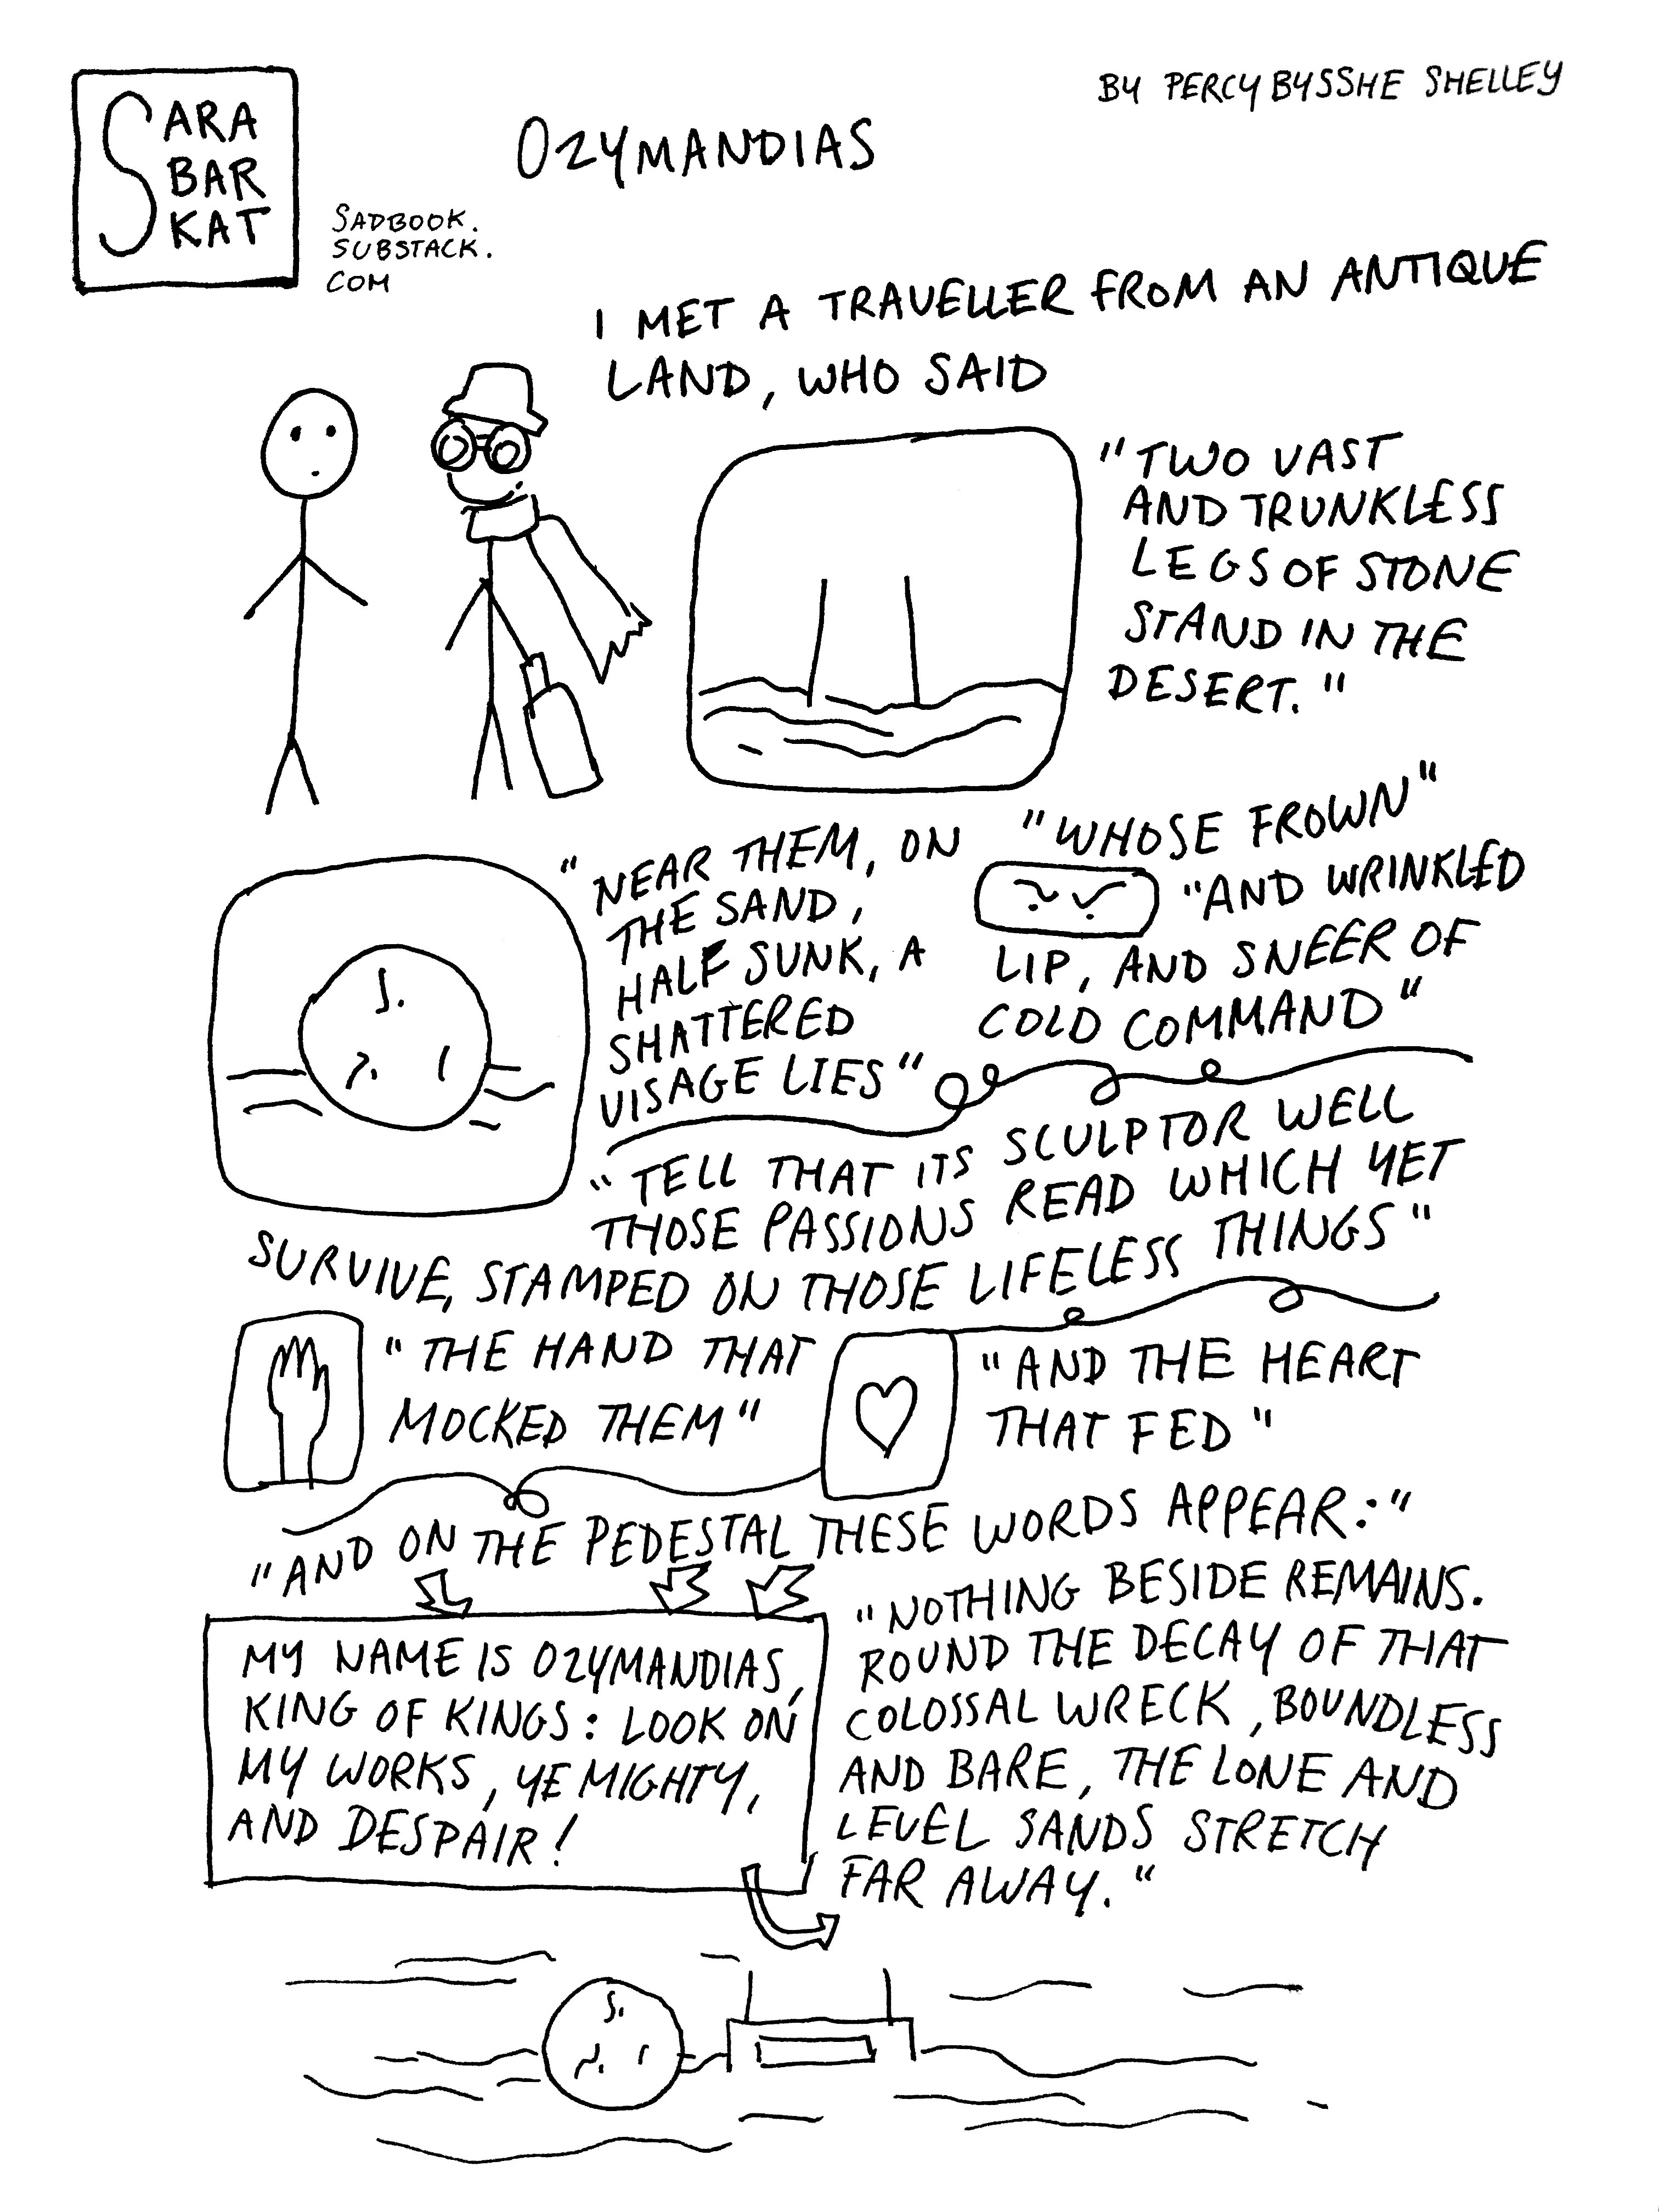 SARA
BAR
KAT
SADBOOK.
SUBSTACK.
COM
OZYMANDIAS
BY PERCY BYSSHE SHELLEY
I MET A TRAVELLER FROM AN ANTIQUE
LAND, WHO SAID
"TWO VAST
AND TRUNKLESS
LEGS OF STONE
STAND IN THE
DESERT."
"NEAR THEM, ON
THE SAND,
HALF SUNK, A
SHATTERED
VISAGE LIES"
"WHOSE FROWN"
"AND WRINKLED
LIP, AND SNEER OF
COLD COMMAND"
"TELL THAT ITS SCULPTOR WELL
THOSE PASSIONS READ WHICH YET
SURVIVE, STAMPED ON THOSE LIFELESS THINGS"
"THE HAND THAT
MOCKED THEM"
"AND THE HEART
THAT FED"
"AND ON THE PEDESTAL THESE WORDS APPEAR:"
MY NAME IS OZYMANDIAS,
KING OF KINGS: LOOK ON
MY WORKS, YE MIGHTY,
AND DESPAIR!
"NOTHING BESIDE REMAINS.
ROUND THE DECAY OF THAT
COLOSSAL WRECK, BOUNDLESS
AND BARE, THE LONE AND
LEVEL SANDS STRETCH
FAR AWAY."